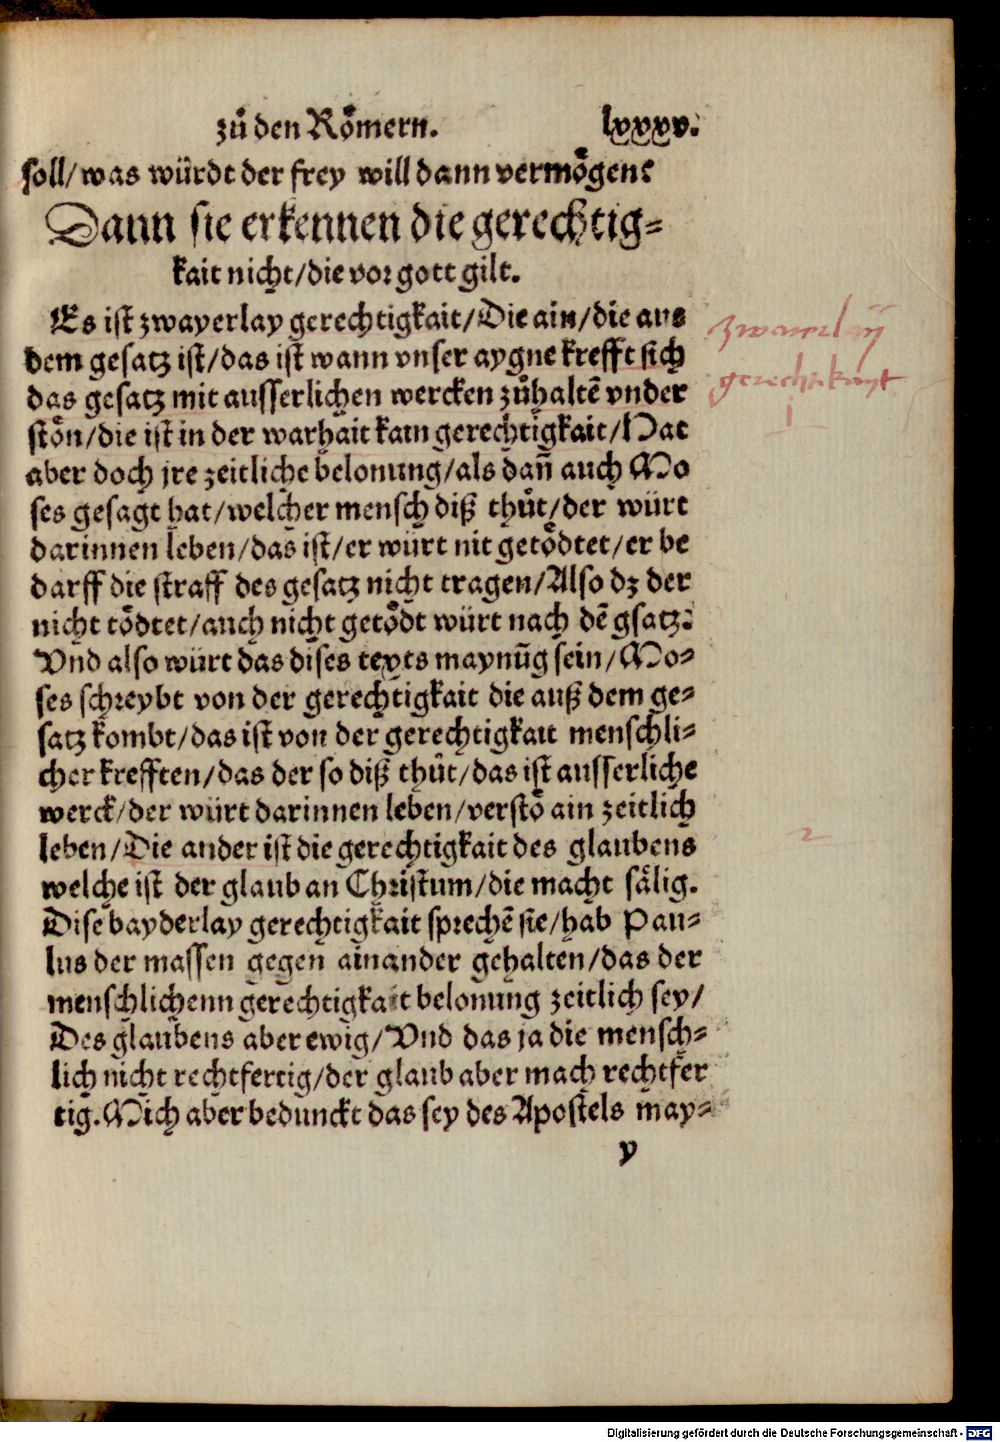 zů den Roͤmern. lxxxv.
soll/was würdt der frey will dann vermoͤgen?
Dann sie erkennen die gerechtig-
kait nicht/die vor gott gilt.
Es ist zwayerlay gerechtigkait/Die ain/die aus
dem gesatz ist/das ist wann vnser aygne krefft sich
das gesatz mit ausserlichen wercken zůhaltē vnder
stoͤn/die ist in der warhait kain gerechtigkait/Hat
aber doch jre zeitliche belonung/als dañ auch Mo
ses gesagt hat/welcher mensch diß thůt/der würt
darinnen leben/das ist/er würt nit getoͤdtet/er be
darff die straff des gesatz nicht tragen/Also dz der
nicht toͤdtet/auch nicht getoͤdt würt nach dē gsatz.
Vnd also würt das dises texts maynūg sein/Mo-
ses schreybt von der gerechtigkait die auß dem ge-
satz kombt/das ist von der gerechtigkait menschli-
cher krefften/das der so diß thůt/das ist ausserliche
werck/der würt darinnen leben/verstoͤ ain zeitlich
leben/Die ander ist die gerechtigkait des glaubens
welche ist der glaub an Christum/die macht saͤlig.
Dise bayderlay gerechtigkait sprechē sie/hab Pau-
lus der massen gegen ainander gehalten/das der
menschlichenn gerechtigkait belonung zeitlich sey/
Des glaubens aber ewig/Vnd das ja die mensch-
lich nicht rechtfertig/der glaub aber mach rechtfer
tig. Mich aber bedunckt das sey des Apostels may-
y
zwaierlaÿ
gerechtikayt
1
2
Digitalisierung gefördert durch die Deutsche Forschungsgemeinschaft - DFG